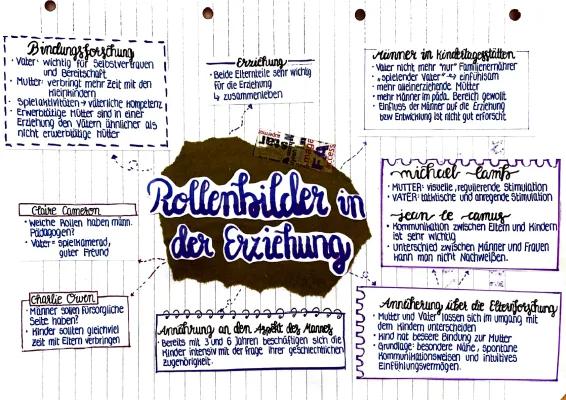 Bindungsforschung
• Vater: wichtig für Selbstvertrauen
und Bereitschaft
• Mutter: verbringt mehr Zeit mit den
Kleinkindern
• Spielaktivitäten → väterliche Kompetenz
• Erwerbstätige Mütter sind in einer
Erziehung den Vätern ähnlicher als
nicht erwerbtätige Mütter
Erziehung
• Beide Elternteile sehr wichtig
für die Erziehung
↳ zusammenleben
Männer in Kindertagesstätten
• Vater nicht mehr "nur" Familienernährer
• "spielender Vater" → einfühlsam
• mehr alleinerziehende Mütter
• mehr Männer im päda. Bereich gewollt
• Einfluss der Männer auf die Erziehung
bzw Entwicklung ist nicht gut erforscht
Rollenbilder in
der Erziehung
Claire Cameron
• Welche Rollen haben männ.
Pädagogen?
• Vater = Spielkamerad,
guter Freund
michael lamb
• MUTTER: visuelle, regulierende Stimulation
• VATER: taktische und anregende Stimulation
jean le camus
• Kommunikation zwischen Eltern und Kindern
ist sehr wichtig
• Unterschied zwischen Männer und Frauen
kann man nicht Nachweißen.
Charlie Owen
• Männer sollen fürsorgliche
Seite haben?
• Kinder sollten gleichviel
Zeit mit Eltern verbringen
Annährung an den Aspekt des Mannes
• Bereits mit 3 und 6 Jahren beschäftigen sich die
Kinder intensiv mit der Frage ihrer geschlechtlichen
Zugehörigkeit.
Annäherung über die Elternforschung
• Mutter und Vater lassen sich im umgang mit
dem Kindern unterscheiden
• Kind hat bessere Bindung zur Mutter
• Grundlage: besondere Nähe, spontane
Kommunikationsweisen und intuitives
Einfühlungsvermögen.